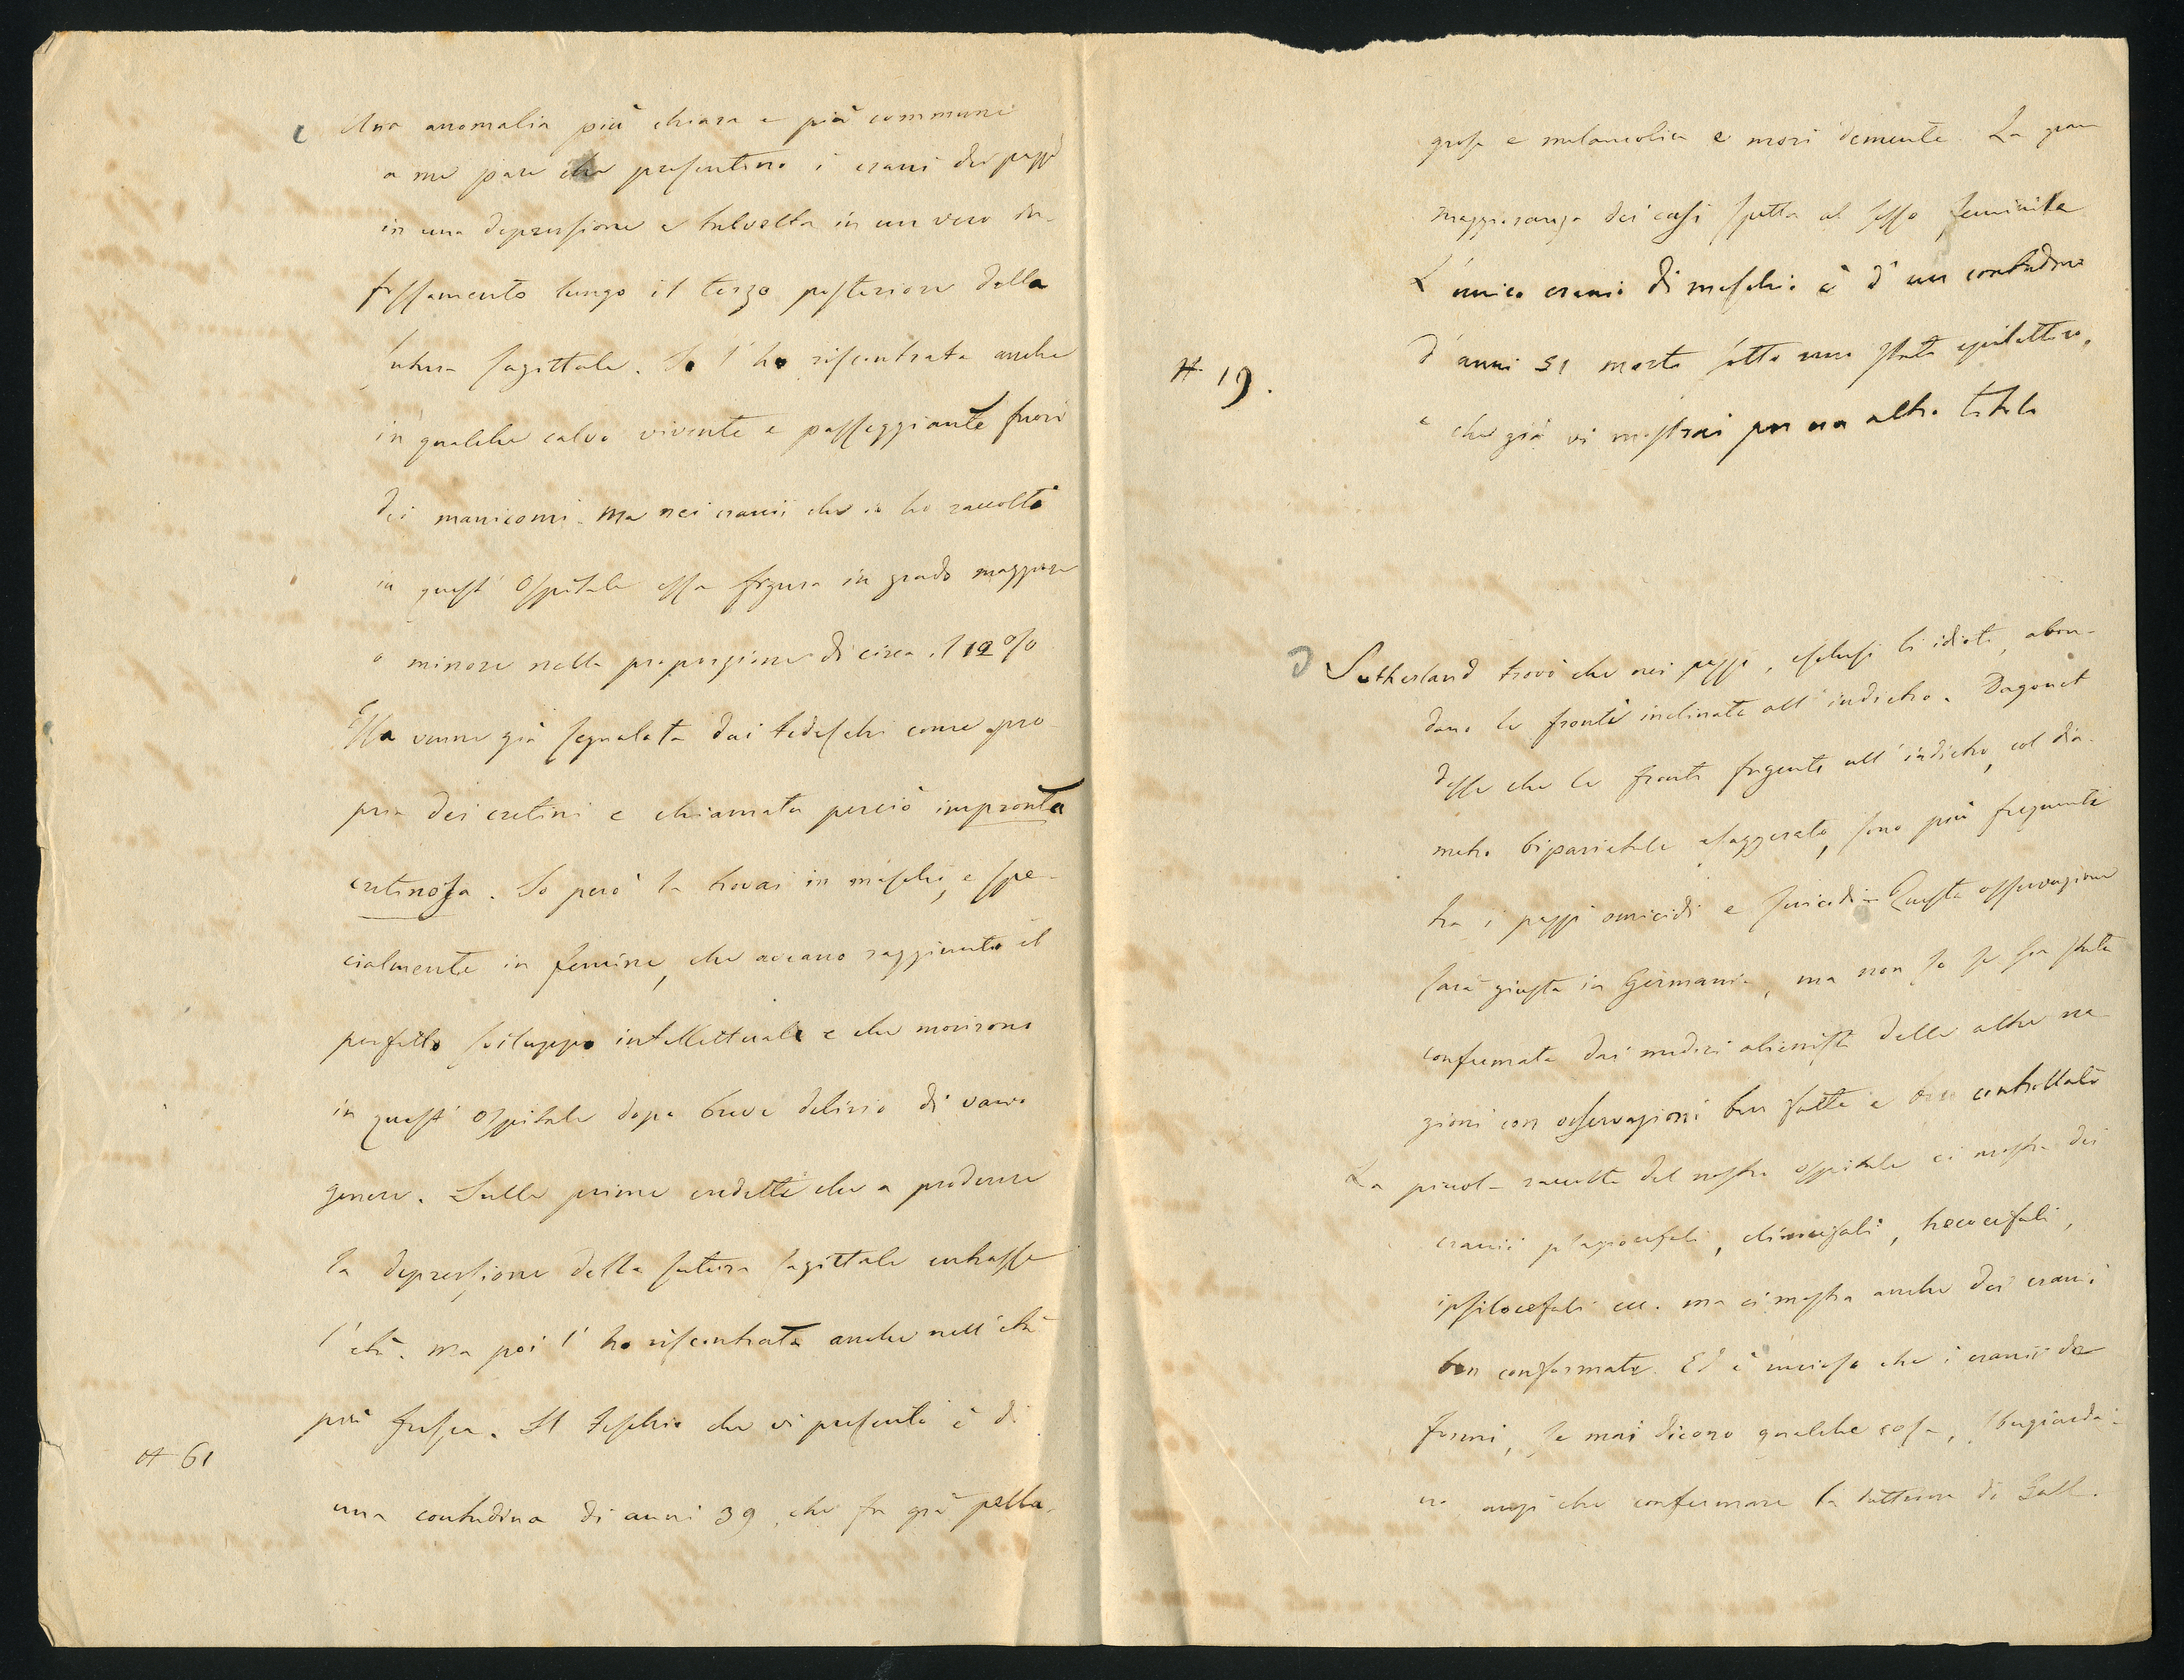 c Una anomalia più chiara e più commune
a me pare che presentino i crani dei pazzi
in una depressione e talvolta in un vero in-
fossamento lungo il terzo posteriore della
sutura sagittale. Io l'ho riscontrata anche
in qualche calvo vivente e passeggiante fuori
dei manicomi. Ma nei cranii che io ho raccolti
in quest' Ospitale essa figura in grado maggiore
o minore nella proporzione di circa il 12 %
Essa venne già segnalata dai tedeschi come pro-
pria dei cretini e chiamata perciò impronta
cretinosa. Io però la trovai in maschi, e spe-
cialmente in femine, che aveano raggiunto il
perfetto sviluppo intellettuale e che morirono
in quest' ospitale dopo breve delirio di vario
genere. Sulle prime credetti che a produrre
la depressione della sutura sagittale entrasse
l' età. Ma poi l' ho riscontrata anche nell' età
più fresca. Il teschio che vi presento è di
# 61
una contadina di anni 39, che fu già pella-
grosa e melancolica e morì demente. La gran
maggioranza dei casi spetta al sesso feminile
L' unico cranio di maschio è d' un contadino
# 19.
d' anni 51 morto sotto uno stato epilettico,
e che già vi mostrai per un altro titolo
D Sutherland trovò che nei pazzi, esclusi li idioti, abon-
dano le fronti inclinate all' indietro. Dagonet
disse che le fronti fugenti all' indietro, col dia-
metro biparietale esaggerato, sono più frequenti
tra i pazzi omicidi e suicidi. Questa osservazione
sarà giusta in Germania, ma non so se sia stata
confermata dai medici alienisti delle altre na-
zioni con osservazioni ben fatte e ben controllate
La piccola raccolta del nostro ospitale ci mostra dei
cranii plagiocefali, clinocefali, trococefali,
ipsilocefali ecc. ma ci mostra anche dei crani
ben conformati. Ed è curioso che i cranii de-
formi, se mai dicono qualche cosa, sbugiarda-
no anzi che confermare la dottrina di Gall.